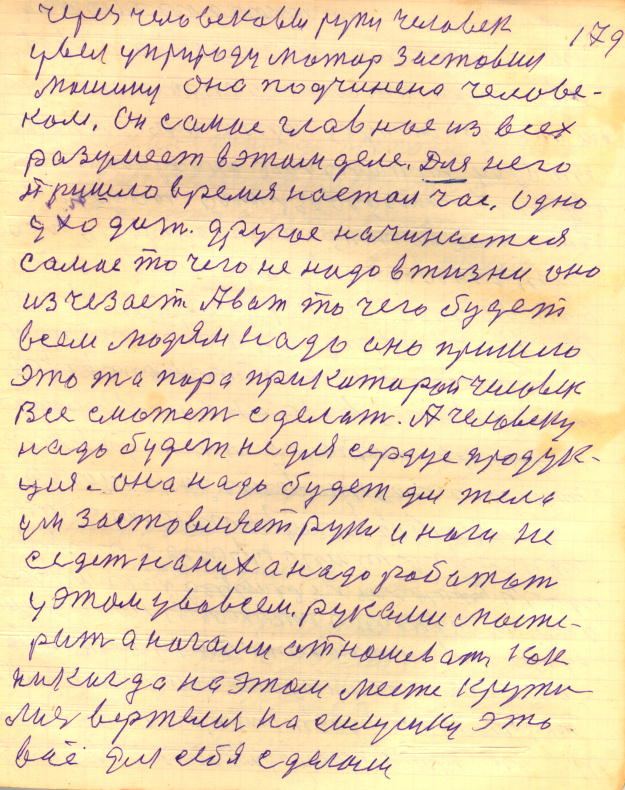 через человековы руки человек
179
увел уприроду мотор Заставил
машину она подчинена челове-
ком. Он самое главное из всех
разумеет вэтом деле. Для него
пришло время настал час. одно
уходит. другое начинается
самое то чего не надо вжизни оно
изчезает. А вот то чего будет
всем людям надо оно пришло
это та пора прикаторой человек
Все сможет сделат. А человеку
надо будет недля сердце продук-
ция. она надо будет для тела
ум Заставляет руки и ноги не
седет на них а надо работат
у этом увовсем. руками масте-
рит а ногами отношеват. как
никогда на этом месте крути
лись вертелись на силушку это
всё для себя сделали